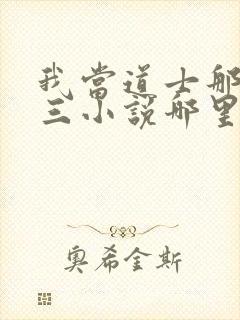 我當道士那
三小說那里
奧希金斯